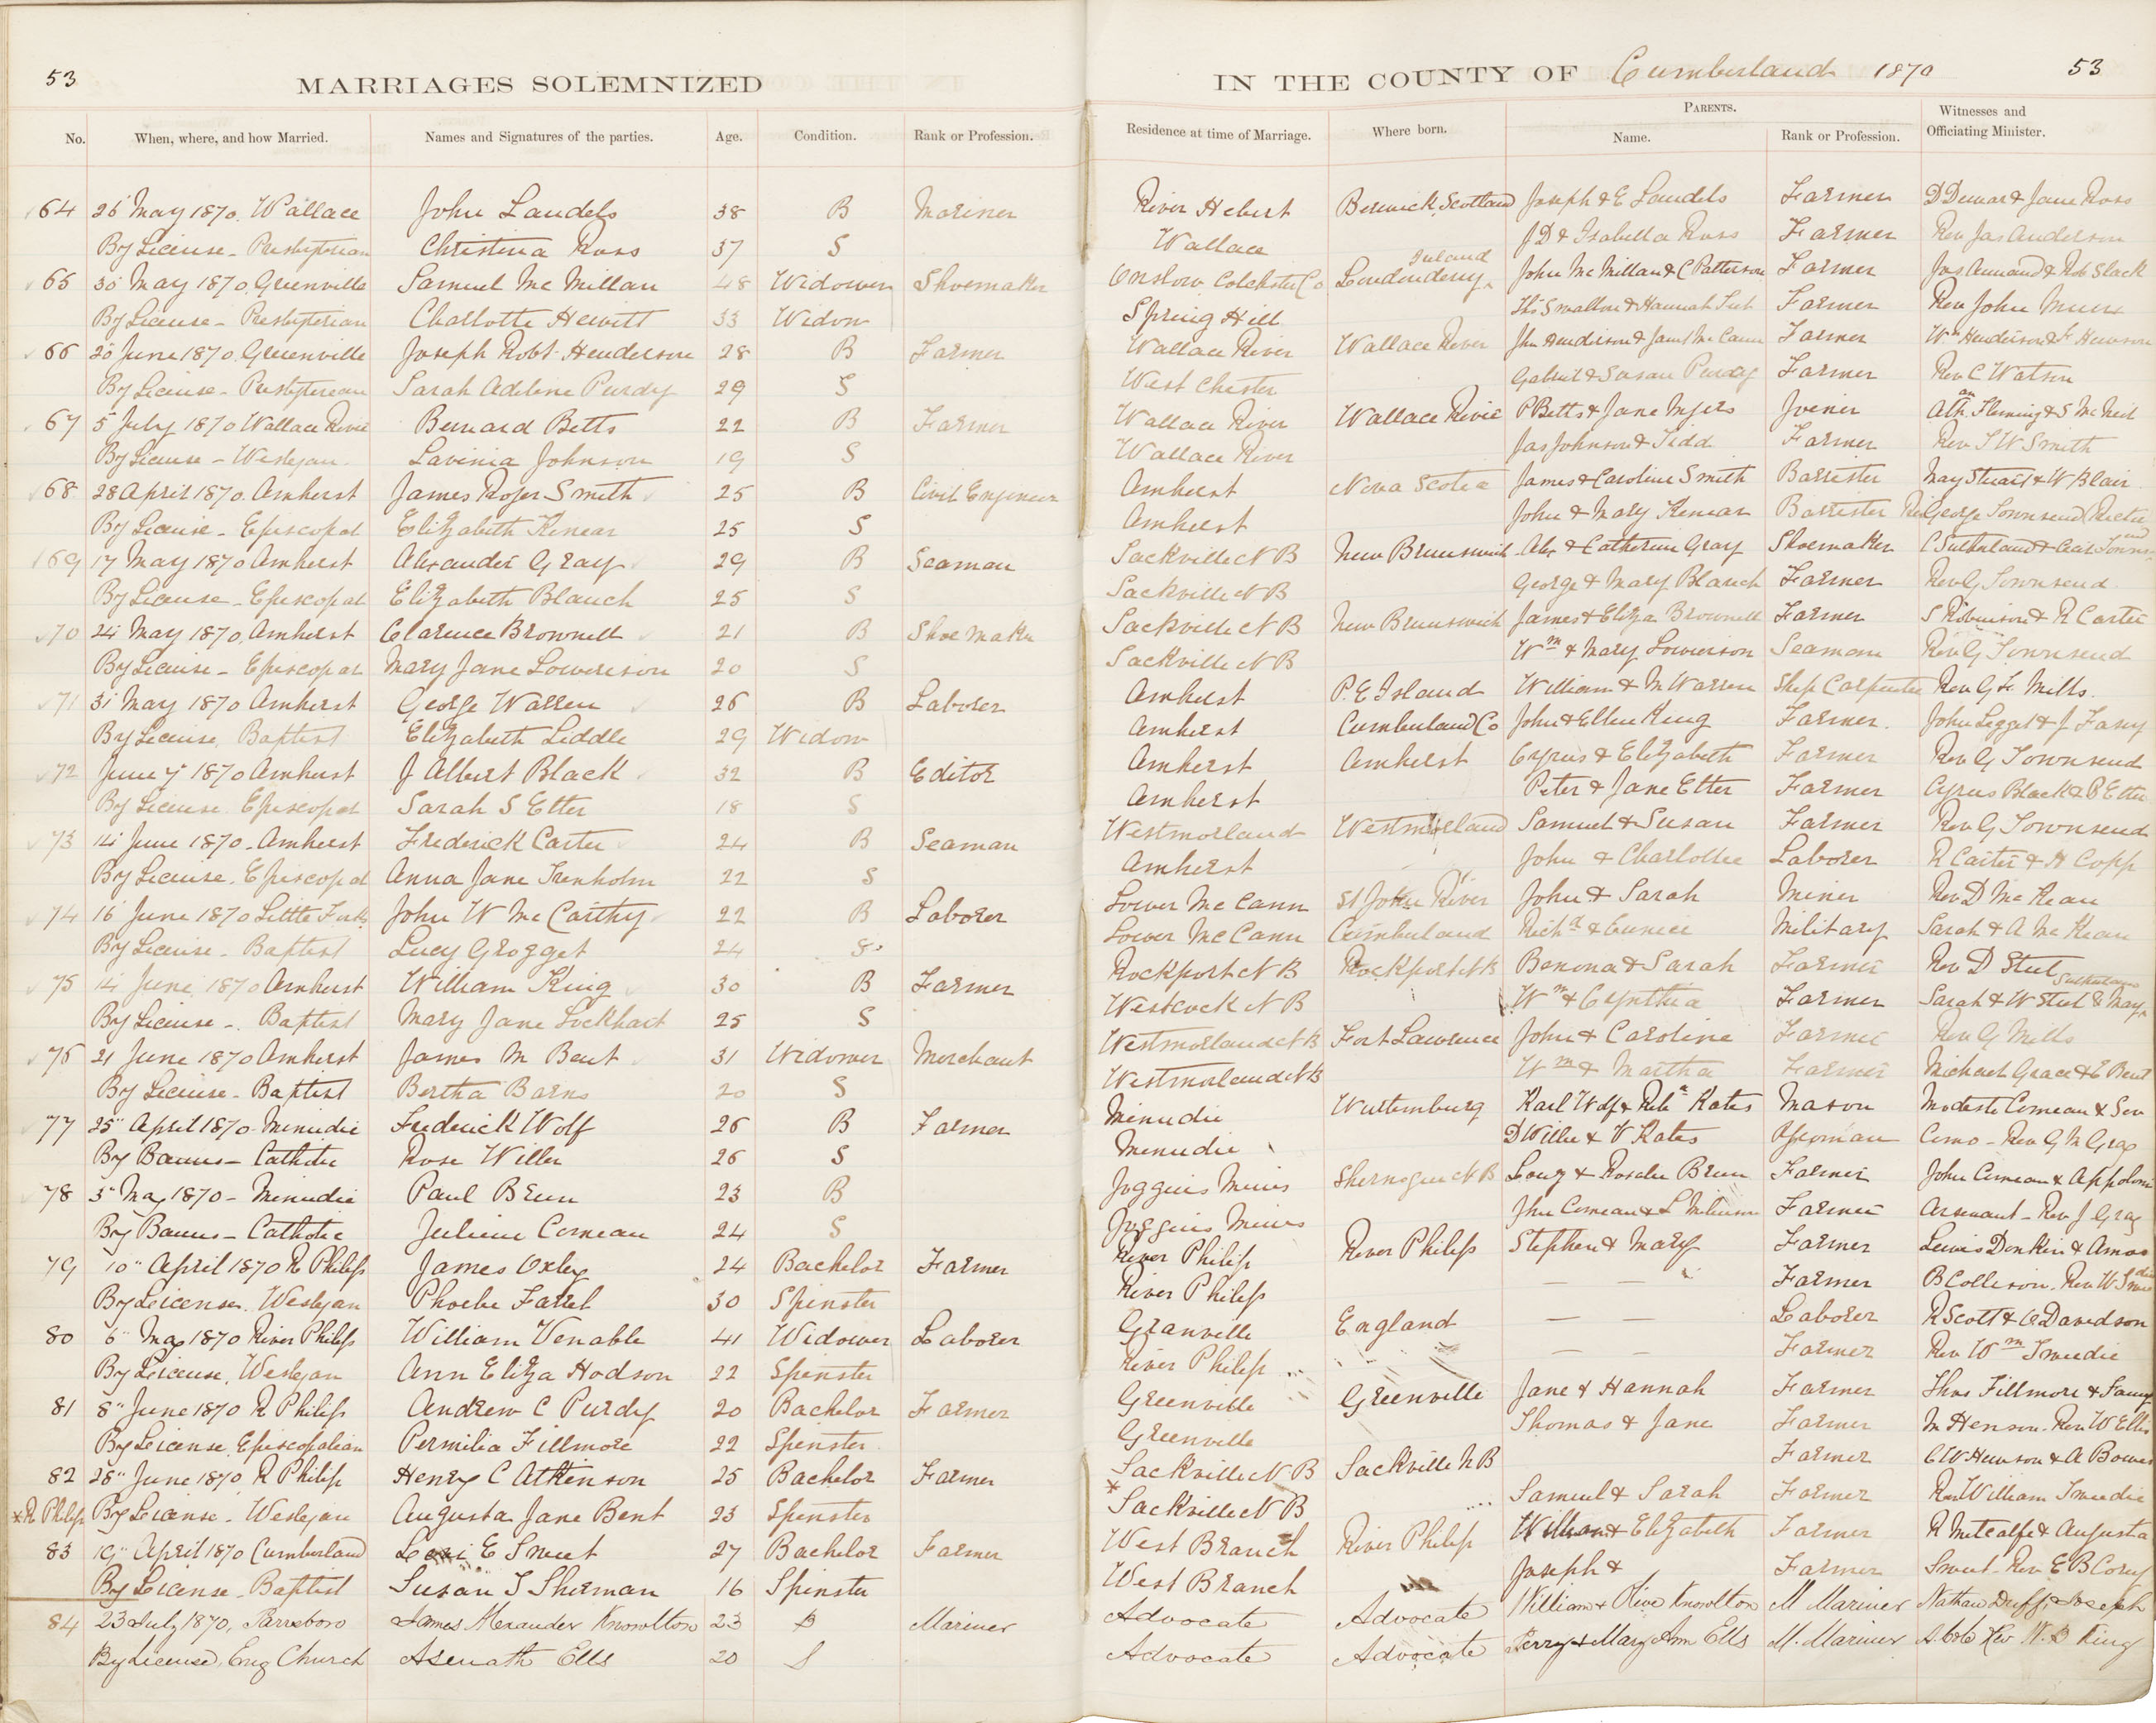 53
MARRIAGES SOLEMNIZED
IN THE COUNTY OF Cumberland 1870
53
No. When, where, and how Married. Names and Signatures of the parties. Age. Condition. Rank or Profession. Residence at time of Marriage. Where born. PARENTS. Name. Rank or Profession. Witnesses and Officiating Minister.
64 26 May 1870, Wallace John Laudels 38 B Mariner River Hebert Berwick, Scotland Joseph & E Laudels Farmer D Dewar & Jane Ross
By License - Presbyterian Christina Ross 37 S Wallace J D & Isabella Ross Farmer Rev Jas Anderson
65 30 May 1870, Greenville Samuel McMillan 48 Widower Shoemaker Onslow Colchester Co Londonderry Ireland John McMillan & C Patterson Farmer Jas Annand & Rob Slack
By License - Presbyterian Charlotte Hewitt 33 Widow Spring Hill Farmer Rev John Munro
66 20 June 1870, Greenville Joseph Robt Henderson 28 B Farmer Wallace River Wallace River Jhn Henderson & Janet McCann Farmer Wm Henderson & F Hewson
By License - Presbyterian Sarah Adeline Purdy 29 S West Chester Gabriel & Susan Purdy Farmer Rev C Watson
67 5 July 1870 Wallace River Bernard Betts 22 B Farmer Wallace River Wallace River P Betts & Jane Myers Joiner Athn Fleming & S McNeil
By License - Wesleyan Lavinia Johnson 19 S Wallace River Jas Johnson & Tidd Farmer Rev T W Smith
68 28 April 1870, Amherst James Roger Smith 25 B Civil Engineer Amherst Nova Scotia James & Caroline Smith Barrister May Stuart & W Blair
By License - Episcopal Elizabeth Kenear 25 S Amherst John & Mary Kenear Barrister Rev George Townsend Rector
69 17 May 1870 Amherst Alexander Gray 29 B Seaman Sackville N B New Brunswick Alx & Catherine Gray Shoemaker C Sutherland &
By License - Episcopal Elizabeth Blanch 25 S Sackville N B George & Mary Blanch Farmer Rev G Townsend
70 24 May 1870, Amherst Clarence Brownell 21 B Shoe Maker Sackville N B New Brunswick James & Eliza Brownell Farmer S Robinson & R Carter
By License - Episcopal Mary Jane Lowerison 20 S Sackville N B Wm & Mary Lowerison Seaman Rev G Townsend
71 31 May 1870 Amherst George Warren 26 B Laborer Amherst P. E Island William & M Warren Ship Carpenter Rev G F Mills.
By License, Baptist Elizabeth Liddle 29 Widow Amherst Cumberland Co John & Ellen King Farmer. John Legget & J Fasey
72 June 7 1870 Amherst J Albert Black 32 B Editor Amherst Amherst Cyrus & Elizabeth Farmer Rev G Townsend
By License Episcopal Sarah S Etter 18 S Amherst Peter & Jane Etter Farmer Cyrus Black & P Etter
73 14 June 1870 - Amherst Frederick Carter 24 B Seaman Westmorland Westmorland Samuel & Susan Farmer Rev G Townsend
By License. Episcopal Anna Jane Trenholm 22 S Amherst John & Charlottee Laborer R Carter & H Copp
74 16 June 1870 Little Forks John W McCarthy 22 B Laborer Lower McCann St John River John & Sarah Miner Rev D McKean
By License - Baptist Lucy Grogget 24 S Lower McCann Cumberland Richd & Eunice Military Sarah & A McKean
75 14 June 1870 Amherst William King 30 B Farmer Rockport N B Rockport N B Benona & Sarah Farmer Rev D Steel
By License - Baptist Mary Jane Lockhart 25 S Westcock N B Wm & Cynthia Farmer Sarah & W Steel & Mary Sutherland
76 21 June 1870 Amherst James M Bent 31 Widower Merchant Westmorland N B Fort Lawrence John & Caroline Farmer Rev G Mills
By License - Baptist Bertha Barns 20 S Westmorland N B Wm & Martha Farmer Michael Grace & E Bent
77 25" April 1870 - Minudie Frederick Wolf 26 B Farmer Minudie Wurtemburg Karl Wolf & Reba Kates Mason Modeste Comeau & Sev
By Banns - Catholic Rose Willer 26 S Minudie D Willer & V Kates Como - Rev G M Gray
78 3" May 1870 - Minudie Paul Brun 23 B Joggins Mines Shemogue N B Loug & Rosalie Brun Farmer John Comeau & Appoloni
By Banns - Catholic Juliene Comeau 24 S Joggins Mines Jhn Comeau & L Melanson Farmer Arsenaut - Rev J Gray
79 10" April 1870 R Philip James Oxley 24 Bachelor Farmer River Philip River Philip Stephen & Mary Farmer Lewis Donkin & Amos
By License. Wesleyan Phoebe Farrel 30 Spinster River Philip — — Farmer B Collison. Rev W Tweedie
80 6" May 1870 River Philip William Venable 41 Widower Laborer Granville England — — Laborer R Scott & C Davidson
By License, Wesleyan Ann Eliza Hodson 22 Spinster River Philip — — Farmer Rev Wm Tweedie
81 8" June 1870 R Philip Andrew C Purdy 20 Bachelor Farmer Greenville Greenville Jane & Hannah Farmer Thos Fillmore & Fanny
By License Episcopalian Permilia Fillmore 22 Spinster Greenville Thomas & Jane Farmer M Henson. Rev W Ellis
82 28" June 1870, R Philip Henry C Atkinson 25 Bachelor Farmer Sackville N B Sackville N B Farmer C W Hewson & A Bowes
*R Philip By License - Wesleyan Augusta Jane Bent 23 Spinster *Sackville N B Samuel & Sarah Farmer Rev William Tweedie
83 19" April 1870 Cumberland Levi E Smeet 27 Bachelor Farmer West Branch River Philip William & Elizabeth Farmer R Metcalfe & Augusta
By License - Baptist Susan T Sherman 16 Spinster West Branch Joseph & Farmer Rev E B Corey
84 23 July 1870, Parrsboro James Alexander Knowlton 23 B Mariner Advocate Advocate William & Olive Knowlton M Mariner Nathan Duffy & Joseph
By License, Eng Church Asenath Ells 20 S Advocate Advocate Perry & Mary Ann Ells M. Mariner A. Cole Rev W. B King